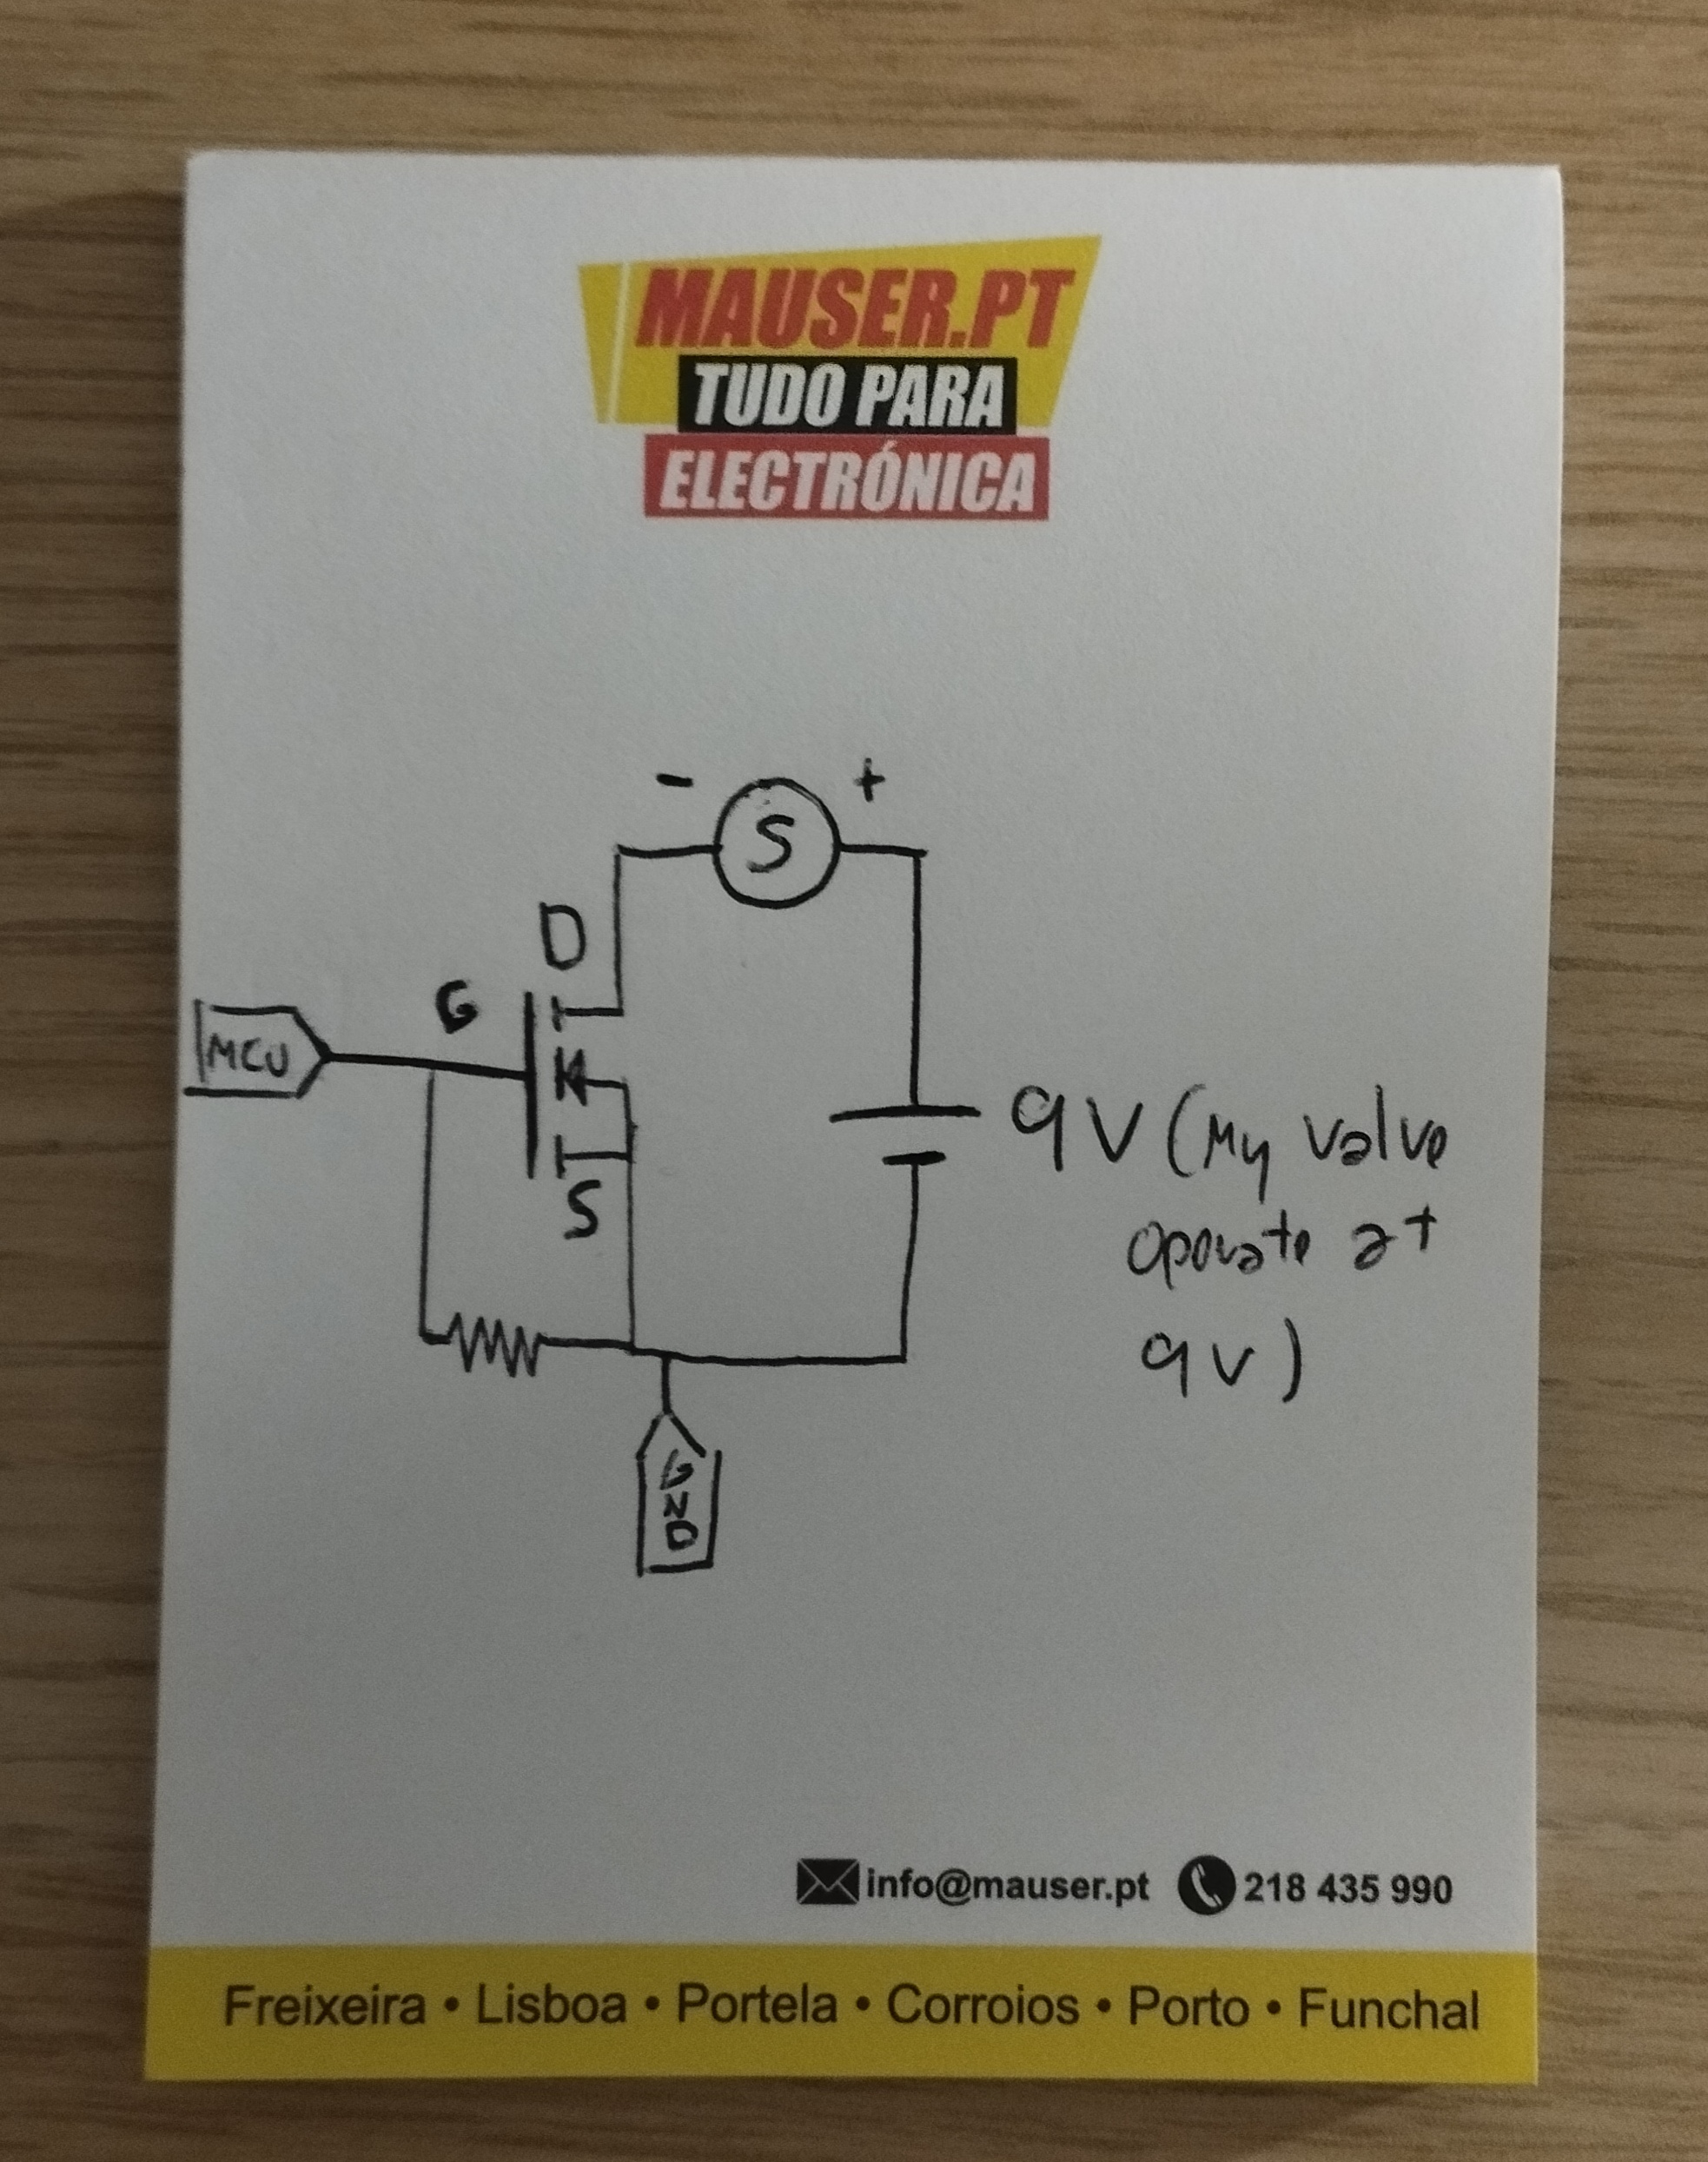 MAUSER.PT
TUDO PARA
ELECTRÓNICA
- +
S
D
G
MCU
S
9V (My valve
operate at
9V)
GND
info@mauser.pt 218 435 990
Freixeira • Lisboa • Portela • Corroios • Porto • Funchal